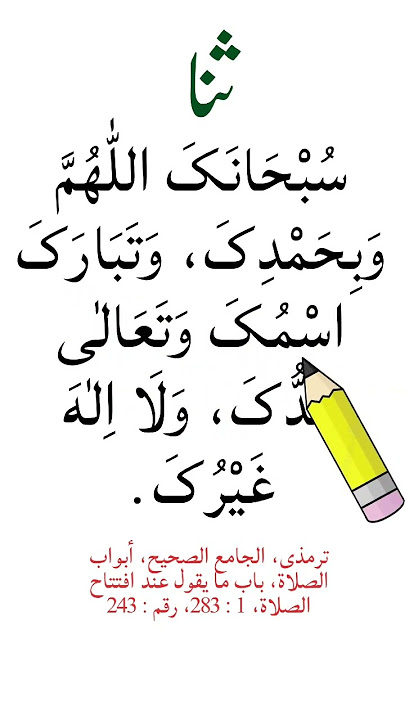 ثنا
سُبْحَانَکَ اللّٰهُمَّ
وَبِحَمْدِکَ، وَتَبَارَکَ
اسْمُکَ وَتَعَالٰی
وَلَا اِلٰهَ
غَيْرُکَ.
ترمذی، الجامع الصحيح، أبواب
الصلاة، باب ما يقول عند افتتاح
الصلاة، 1 : 283، رقم : 243